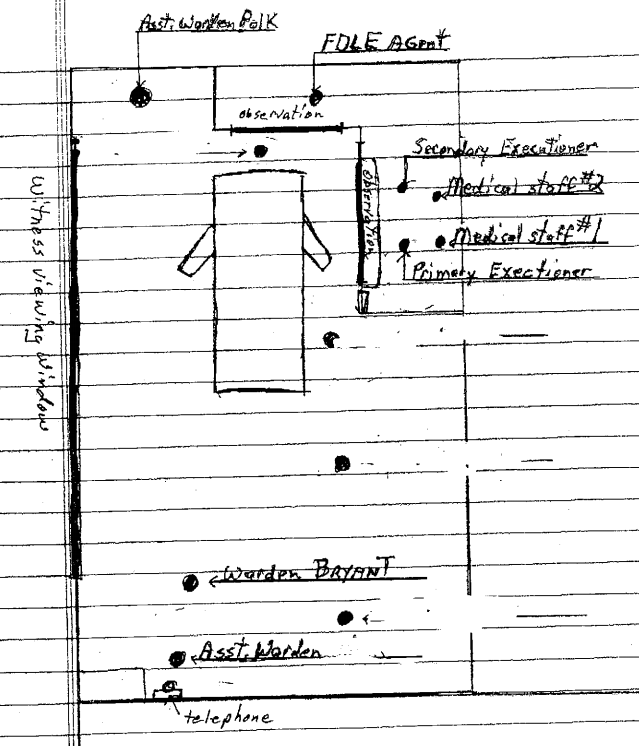 Asst. Warden Polk
FDLE AGENT
observation
Secondary Executioner
Medical staff #2
observation
Medical staff #1
Primary Exectioner
Witness viewing window
Warden BRYANT
Asst. Warden
telephone